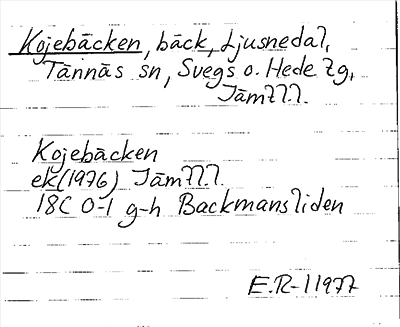 Kojebäcken, bäck, Ljusnedal,
Tännäs sn, Svegs o. Hede tg,
Jämtl.l.
Kojebäcken
ek(1976) Jämtl.l.
18C 0-1 g-h Backmansliden
E.R-l 1977